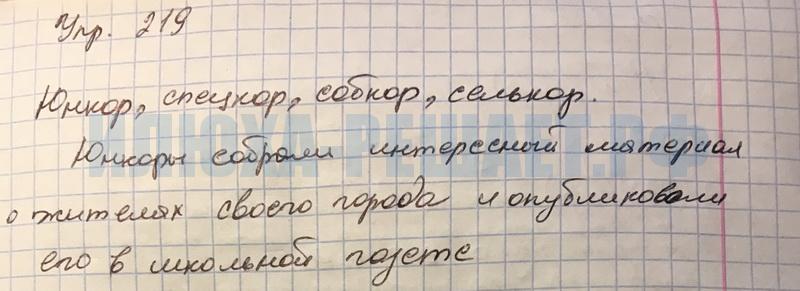 Упр. 219
Юнкор, спецкор, собкор, селькор.
ИЛЮХА-РЕШАЕТ.РФ
Юнкоры собрали интересный материал
о жителях своего города и опубликовали
его в школьной газете